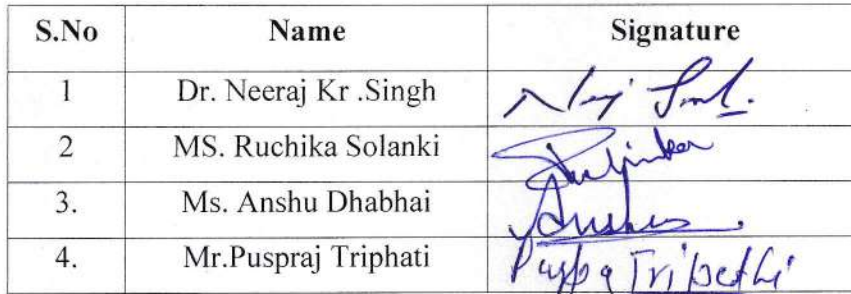 S.No Name Signature
1 Dr. Neeraj Kr .Singh
2 MS. Ruchika Solanki
3. Ms. Anshu Dhabhai Anshu
4. Mr.Puspraj Triphati Tripathi